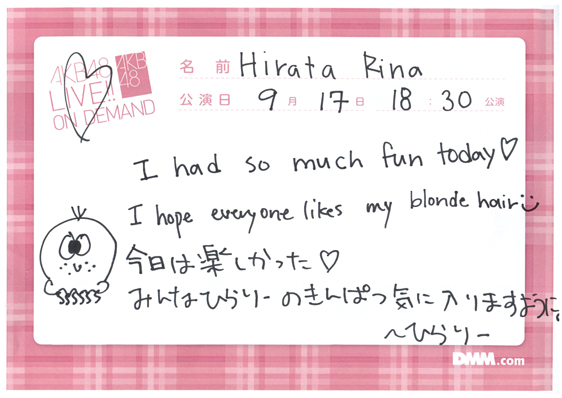 AKB48
LIVE!!
ON DEMAND
AKB
48
名前 Hirata Rina
公演日 9月17日 18:30公演
I had so much fun today♡
I hope everyone likes my blonde hair
今日は楽しかった♡
みんなひらりーのきんぱつ気に入りますように。
〜ひらりー
DMM.com